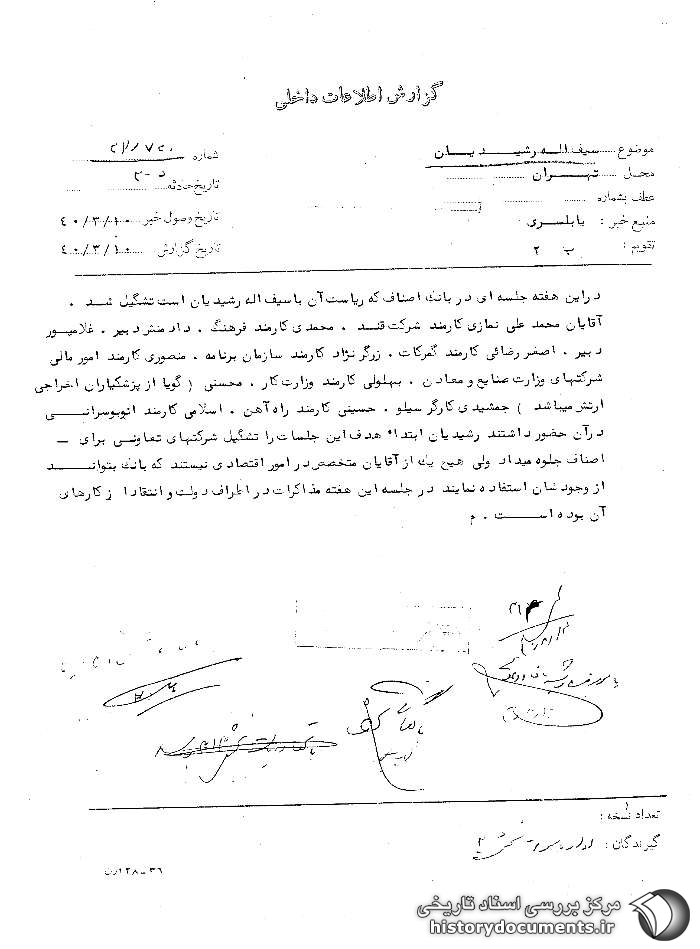 گزارش اطلاعات داخلی
موضوع سیف اله رشیدیان
شماره
محل تهران
تاریخ حادثه
عطف بشماره
تاریخ وصول خبر ۴۰/۳/۱۰
منبع خبر : بابلسری
تاریخ گزارش ۴۰/۳/۱۰
تقویم : ب ۲
دراین هفته جلسه ای در بانک اصناف که ریاست آن با سیف اله رشیدیان است تشگیل شد .
آقایان محمد علی نمازی کارمند شرکت قند . محمدی کارمند فرهنگ . دادمنش دبیر . غلامپور
دبیر . اصغر رضائی کارمند گمرکات . زرگر نژاد کارمند سازمان برنامه . منصوری کارمند امور مالی
شرکتهای وزارت صنایع و معادن . بهلولی کارمند وزارت کار . محسنی ( گویا از پزشکیاران اخراجی
ارتش میباشد ) جمشیدی کارگر سیلو . حسینی کارمند راه آهن . اسلامی کارمند اتوبوسرانی
در آن حضور داشتند رشیدیان ابتدا هدف این جلسات را تشگیل شرکتهای تعاونی برای –
اصناف جلوه میداد ولی هیچ یک از آقایان متخصص در امور اقتصادی نیستند که بانک بتواند
از وجودشان استفاده نمایند در جلسه این هفته مذاکرات در اطراف دولت و انتقاد از کارهای
آن بوده است . م
تعداد نسخه :
گیرندگان :
۳۶-۱۲۸
مرکز بررسی اسناد تاریخی
historydocuments.ir